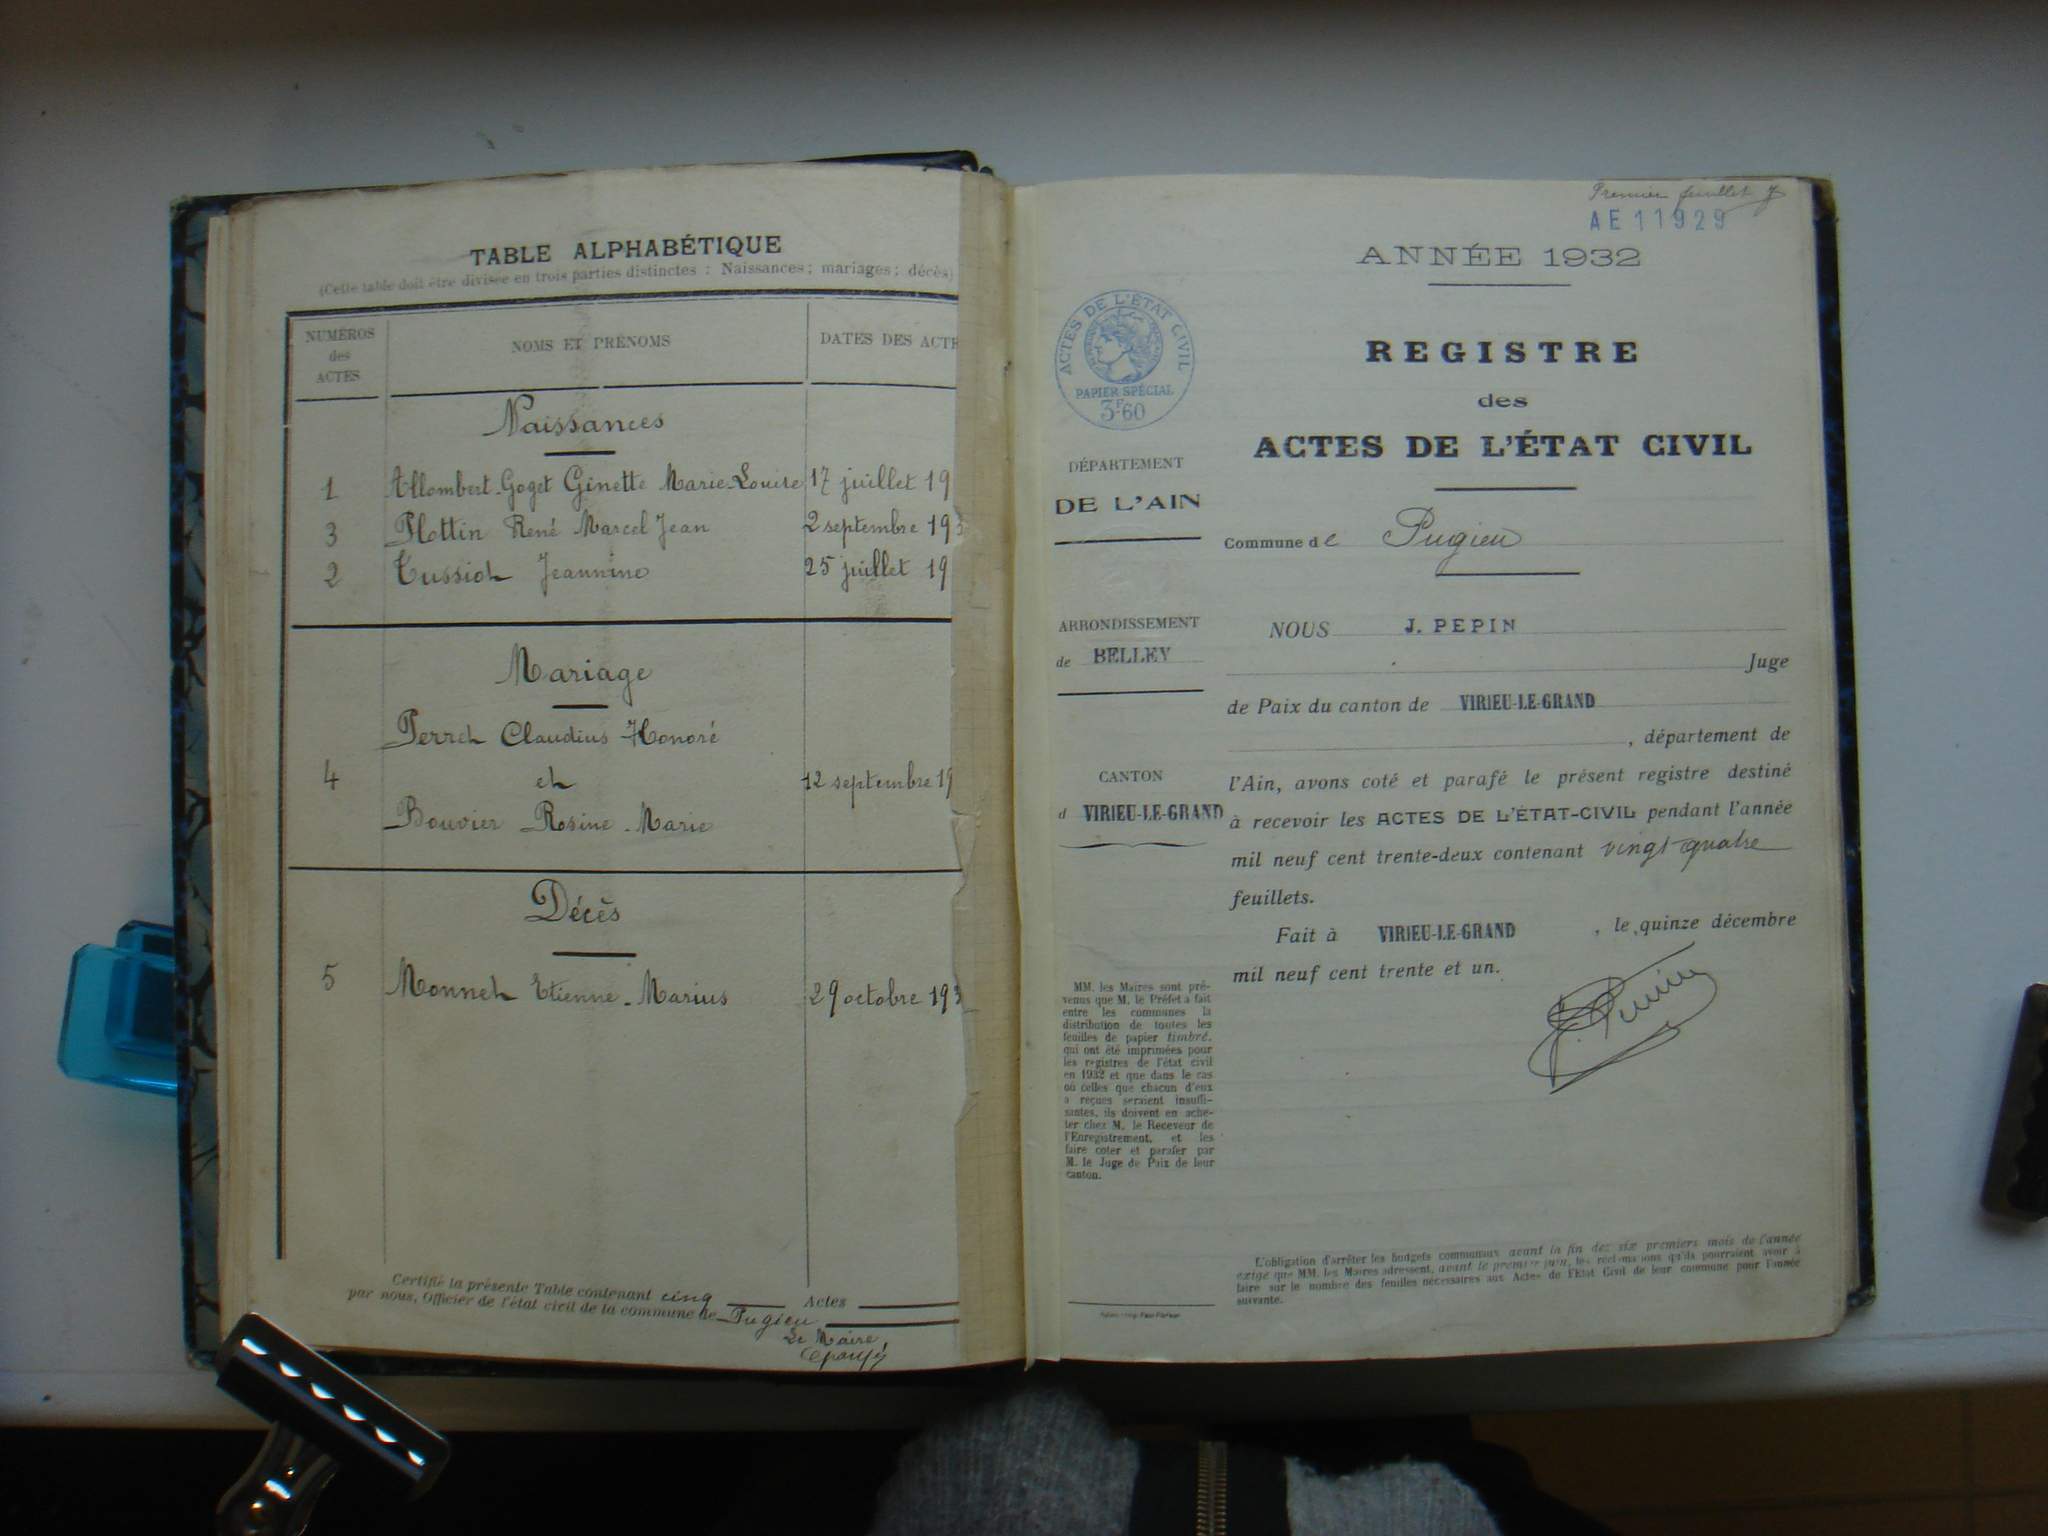 TABLE ALPHABÉTIQUE
(Cette table doit être divisée en trois parties distinctes : Naissances ; mariages ; décès)
NUMÉROS des ACTES
NOMS ET PRÉNOMS
DATES DES ACTE
Naissances
1 Allombert-Goget Ginette Marie-Louise 17 juillet 19
3 Plottin René Marcel Jean 2 septembre 193
2 Tussioh Jeannine 25 juillet 19
Mariage
Perret Claudius Honoré
4 et 12 septembre 19
Bouvier Rosine-Marie
Décès
5 Monnet Etienne-Marius 29 octobre 193
Certifié la présente Table contenant cinq Actes
par nous, Officier de l'état civil de la commune de Pugieu
Le Maire,
Premier feuillet
AE 11929
ANNÉE 1932
ACTES DE L'ÉTAT CIVIL
PAPIER SPÉCIAL
3F60
REGISTRE
des
ACTES DE L'ÉTAT CIVIL
DÉPARTEMENT
DE L'AIN
Commune de Pugieu
ARRONDISSEMENT
de BELLEY
NOUS J. PEPIN
Juge
de Paix du canton de VIRIEU-LE-GRAND
, département de
CANTON
d VIRIEU-LE-GRAND
l'Ain, avons coté et parafé le présent registre destiné
à recevoir les ACTES DE L'ÉTAT-CIVIL pendant l'année
mil neuf cent trente-deux contenant vingt-quatre
feuillets.
Fait à VIRIEU-LE-GRAND , le quinze décembre
mil neuf cent trente et un.
MM. les Maires sont pré-
venus que M. le Préfet a fait
entre les communes la
distribution de toutes les
feuilles de papier timbré,
qui ont été imprimées pour
les registres de l'état civil
en 1932 et que dans le cas
où celles que chacun d'eux
a reçues seraient insuffi-
santes, ils doivent en ache-
ter chez M. le Receveur de
l'Enregistrement, et les
faire coter et parafer par
M. le Juge de Paix de leur
canton.
L'obligation d'arrêter les budgets communaux avant la fin des six premiers mois de l'année
exige que MM. les Maires adressent, avant le premier juin, les réclamations qu'ils pourraient avoir à
faire sur le nombre des feuilles nécessaires aux Actes de l'Etat Civil de leur commune pour l'année
suivante.